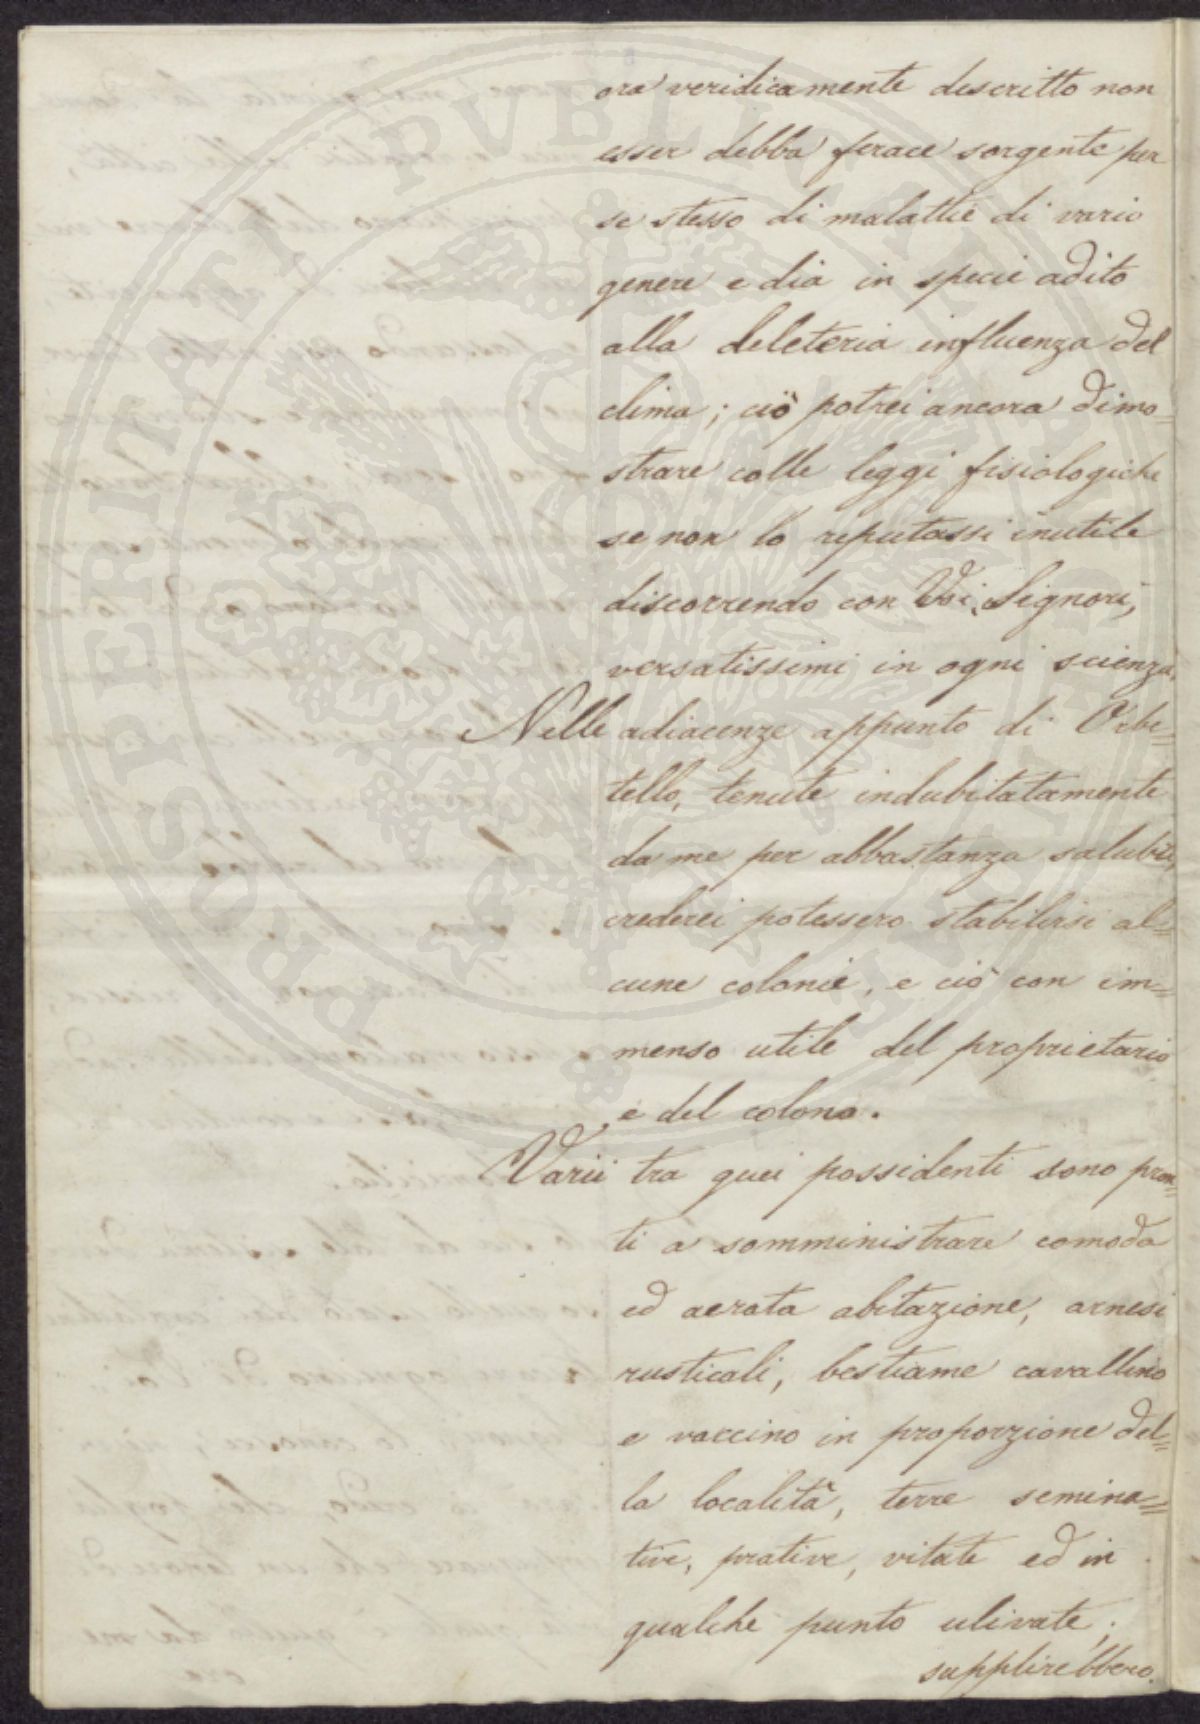 ora veridicamente descritto non
esser debba ferace sorgente per
se stesso di malattie di vario
genere e dia in specie adito
alla deleteria influenza del
clima; ciò potrei ancora dimo=
strare colle leggi fisiologiche
se non lo reputassi inutile
discorrendo con Voi, Signori,
versatissimi in ogni scienza.
Nelle adiacenze appunto di Orbe=
tello, tenute indubitatamente
da me per abbastanza salubri,
crederei potessero stabilirsi al=
cune colonie, e ciò con im=
menso utile del proprietario
e del colono.
Varii tra quei possidenti sono pron=
ti a somministrare comoda
ed aerata abitazione, arnesi
rusticali, bestiame cavallino
e vaccino in proporzione del=
la località, terre semina=
tive, prative, vitate ed in
qualche punto ulivate;
supplirebbero
PROSPERITATI PVBLICAE